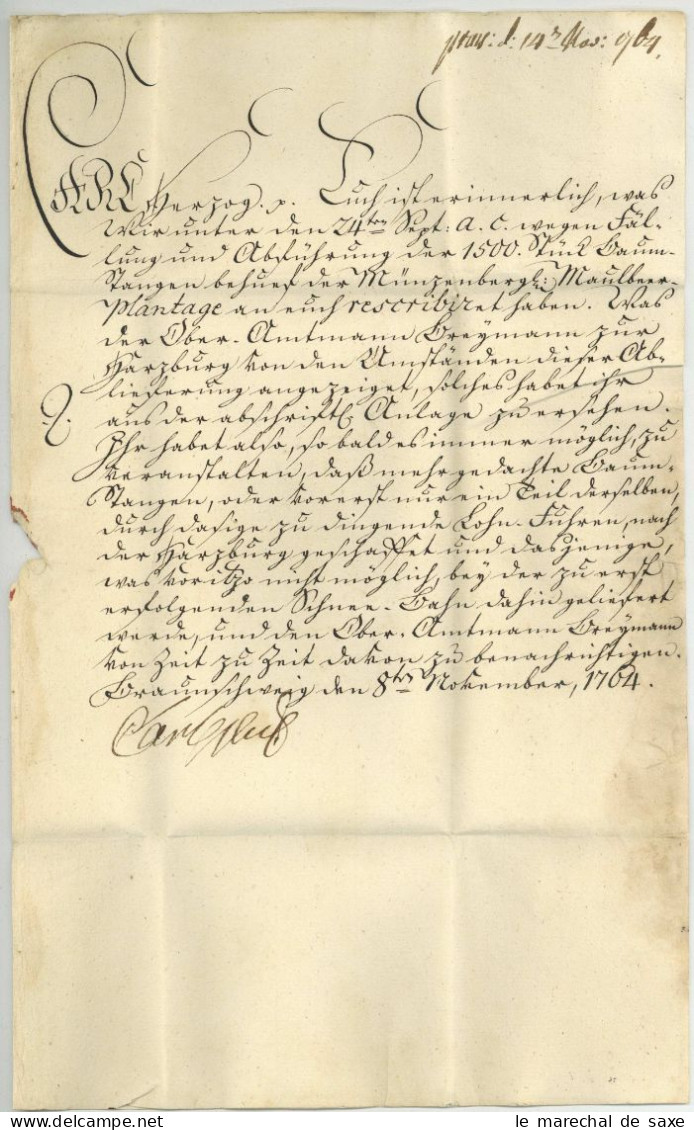 praes: d: 14ᵗ Nov: 764.
CARL Herzog. p. Euch ist erinnerlich, was
Wir unter den 24ten Sept: a. c. wegen Fäl-
lung und Abführung der 1500. Stück Baum-
Stangen behuef der Münzenbergl: Maulbeer-
Plantage an euch rescribiret haben. Was
der Ober-Amtmann Breymann zur
Harzburg von den Umständen dieser Ab-
lieferung angezeiget, solches habet ihr
aus der abschriftl. Anlage zu ersehen.
Ihr habet also, so bald es immer möglich, zu
veranstalten, daß mehrgedachte Baum-
Stangen, oder vorerst nur ein Teil derselben,
durch dasige zu dingende Lohn-Fuhren, nach
der Harzburg geschaffet und dasjenige,
was voritzo nicht möglich, bey der zu erst
erfolgenden Schnee-Bahn dahin geliefert
werde, und den Ober-Amtmann Breymann
von Zeit zu Zeit davon zu benachrichtigen.
Braunschweig den 8ten November, 1764.
Carl
delcampe.net
le marechal de saxe